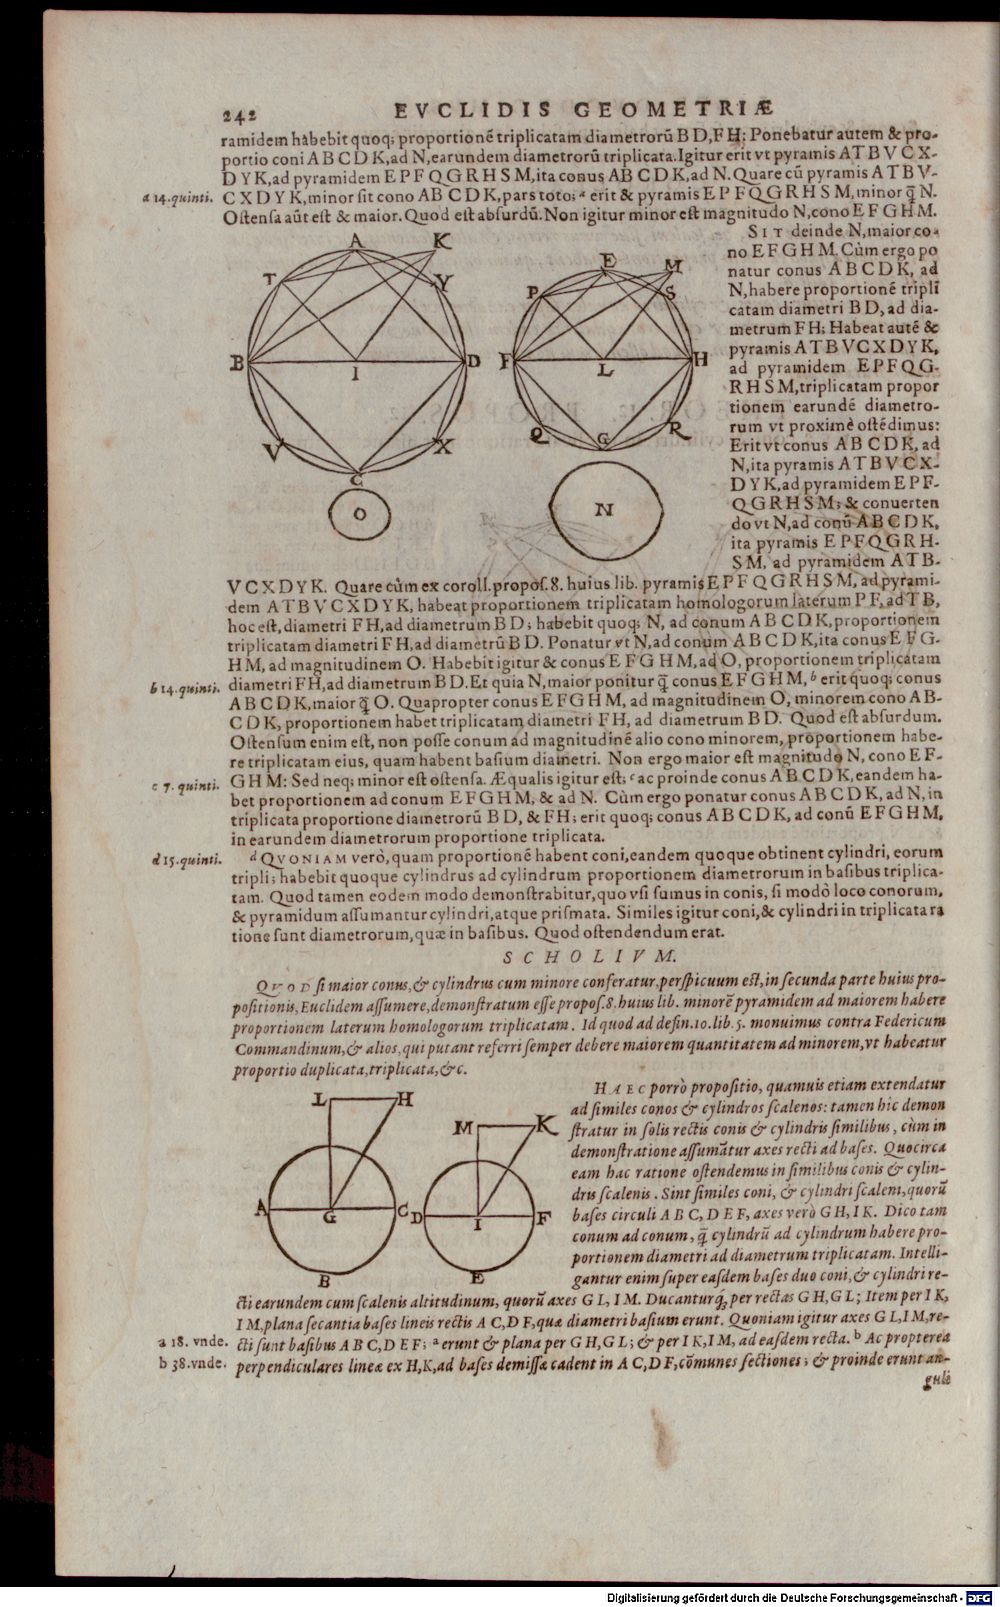 242 EVCLIDIS GEOMETRIÆ
ramidem habebit quoq; proportionē triplicatam diametrorū B D, F H; Ponebatur autem & pro-
portio coni A B C D K, ad N, earundem diametrorū triplicata. Igitur erit vt pyramis A T B V C X-
D Y K, ad pyramidem E P F Q G R H S M, ita conus A B C D K, ad N. Quare cū pyramis A T B V-
a 14. quinti. C X D Y K, minor sit cono A B C D K, pars toto; ᵃ erit & pyramis E P F Q G R H S M, minor q̄ N.
Ostensa aūt est & maior. Quod est absurdū. Non igitur minor est magnitudo N, cono E F G H M.
SIT deinde N, maior co-
no E F G H M. Cùm ergo po
natur conus A B C D K, ad
N, habere proportionē tripli
catam diametri B D, ad dia-
metrum F H; Habeat autē &
pyramis A T B V C X D Y K,
ad pyramidem E P F Q G-
R H S M, triplicatam propor
tionem earundē diametro-
rum vt proximè ostēdimus:
Erit vt conus A B C D K, ad
N, ita pyramis A T B V C X-
D Y K, ad pyramidem E P F-
Q G R H S M; & conuerten
do vt N, ad conū A B C D K,
ita pyramis E P F Q G R H-
S M, ad pyramidem A T B-
A K T Y B D I V X C O
E M P S F H L Q R G N
V C X D Y K. Quare cùm ex coroll. propos. 8. huius lib. pyramis E P F Q G R H S M, ad pyrami-
dem A T B V C X D Y K, habeat proportionem triplicatam homologorum laterum P F, ad T B,
hoc est, diametri F H, ad diametrum B D; habebit quoq; N, ad conum A B C D K, proportionem
triplicatam diametri F H, ad diametrū B D. Ponatur vt N, ad conum A B C D K, ita conus E F G-
H M, ad magnitudinem O. Habebit igitur & conus E F G H M, ad O, proportionem triplicatam
b 14. quinti. diametri F H, ad diametrum B D. Et quia N, maior ponitur q̄ conus E F G H M, ᵇ erit quoq; conus
A B C D K, maior q̄ O. Quapropter conus E F G H M, ad magnitudinem O, minorem cono A B-
C D K, proportionem habet triplicatam diametri F H, ad diametrum B D. Quod est absurdum.
Ostensum enim est, non posse conum ad magnitudinē alio cono minorem, proportionem habe-
re triplicatam eius, quam habent basium diametri. Non ergo maior est magnitudo N, cono E F-
c 7. quinti. G H M: Sed neq; minor est ostensa. Æqualis igitur est; ᶜ ac proinde conus A B C D K, eandem ha-
bet proportionem ad conum E F G H M, & ad N. Cùm ergo ponatur conus A B C D K, ad N, in
triplicata proportione diametrorū B D, & F H; erit quoq; conus A B C D K, ad conū E F G H M,
in earundem diametrorum proportione triplicata.
d 15. quinti. ᵈ QVONIAM verò, quam proportionē habent coni, eandem quoque obtinent cylindri, eorum
tripli; habebit quoque cylindrus ad cylindrum proportionem diametrorum in basibus triplica-
tam. Quod tamen eodem modo demonstrabitur, quo vsi sumus in conis, si modò loco conorum,
& pyramidum assumantur cylindri, atque prismata. Similes igitur coni, & cylindri in triplicata ra
tione sunt diametrorum, quæ in basibus. Quod ostendendum erat.
SCHOLIVM.
QVOD si maior conus, & cylindrus cum minore conferatur, perspicuum est, in secunda parte huius pro-
positionis, Euclidem assumere, demonstratum esse propos. 8. huius lib. minorē pyramidem ad maiorem habere
proportionem laterum homologorum triplicatam. Id quod ad defin. 10. lib. 5. monuimus contra Federicum
Commandinum, & alios, qui putant referri semper debere maiorem quantitatem ad minorem, vt habeatur
proportio duplicata, triplicata, &c.
HAEC porrò propositio, quamuis etiam extendatur
ad similes conos & cylindros scalenos: tamen hic demon
stratur in solis rectis conis & cylindris similibus, cùm in
demonstratione assumātur axes recti ad bases. Quocirca
eam hac ratione ostendemus in similibus conis & cylin-
dris scalenis. Sint similes coni, & cylindri scaleni, quorū
bases circuli A B C, D E F, axes verò G H, I K. Dico tam
conum ad conum, q̄ cylindrū ad cylindrum habere pro-
portionem diametri ad diametrum triplicatam. Intelli-
gantur enim super easdem bases duo coni, & cylindri re-
L H A G C B
M K D I F E
cti earundem cum scalenis altitudinum, quorū axes G L, I M. Ducanturq́; per rectas G H, G L; Item per I K,
I M, plana secantia bases lineis rectis A C, D F, quæ diametri basium erunt. Quoniam igitur axes G L, I M, re-
a 18. vnde. cti sunt basibus A B C, D E F; ᵃ erunt & plana per G H, G L; & per I K, I M, ad easdem recta. ᵇ Ac propterea
b 38. vnde. perpendiculares lineæ ex H, K, ad bases demissæ cadent in A C, D F, cōmunes sectiones; & proinde erunt an-
guli
Digitalisierung gefördert durch die Deutsche Forschungsgemeinschaft - DFG